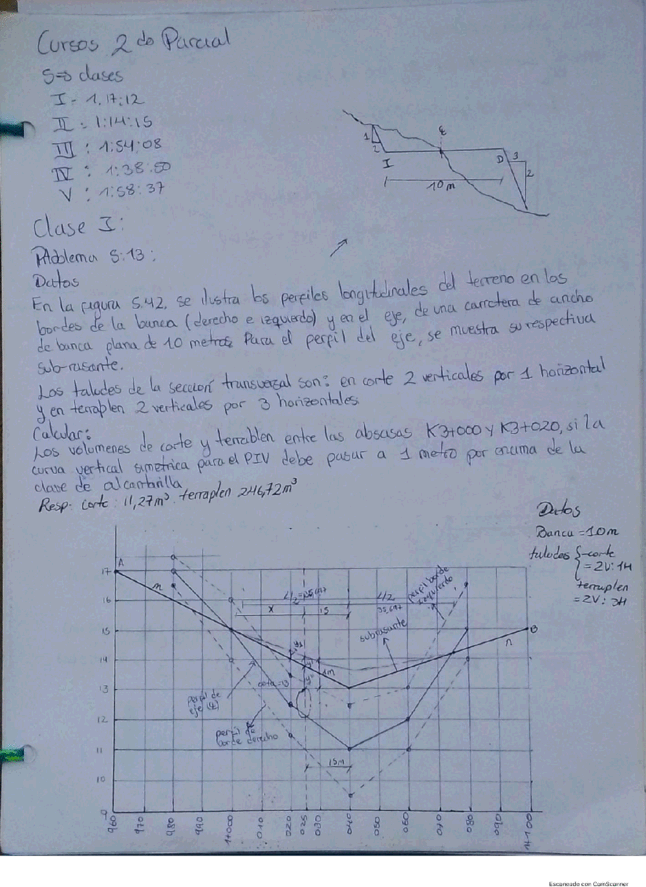 Cursos 2do Parcial
5 => clases
I - 1:17:12
II = 1:14:15
III : 1:54:08
IV : 1:38:50
V : 1:58:37
1
I
10 m
D
3
2
Clase I:
Problema 5.13:
Datos
En la figura 5.42. se ilustra los perfiles longitudinales del terreno en los
bordes de la banca (derecho e izquierdo) y en el eje, de una carretera de ancho
de banca plana de 10 metros. Para el perfil del eje, se muestra su respectiva
sub-rasante.
Los taludes de la sección transversal son: en corte 2 verticales por 1 horizontal
y en terraplen 2 verticales por 3 horizontales
Calcular:
Los volumenes de corte y terraplen entre las abscisas K3+000 y K3+020, si la
curva vertical simetrica para el PIV debe pasar a 1 metro por encima de la
clave de alcantarilla
Resp: Corte: 11,27m³ terraplen 246,72m³
Datos
Banca = 10m
taludes corte
= 2V:1H
terraplen
= 2V:3H
A
17
16
15
14
13
12
11
10
9
m
x
15
L/2
perfil borde
izquierdo
subrasante
n
B
1M
perfil de
eje
perfil de
borde derecho
15M
960
970
980
990
010
020
025
030
040
050
060
070
080
090
Escaneado con CamScanner